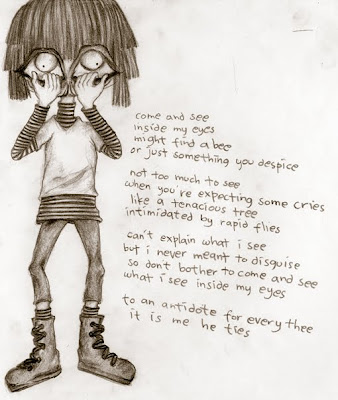 come and see
inside my eyes
might find a bee
or just something you despice
not too much to see
when you're expecting some cries
like a tenacious tree
intimidated by rapid flies
can't explain what i see
but i never meant to disguise
so don't bother to come and see
what i see inside my eyes
to an antidote for every thee
it is me he ties